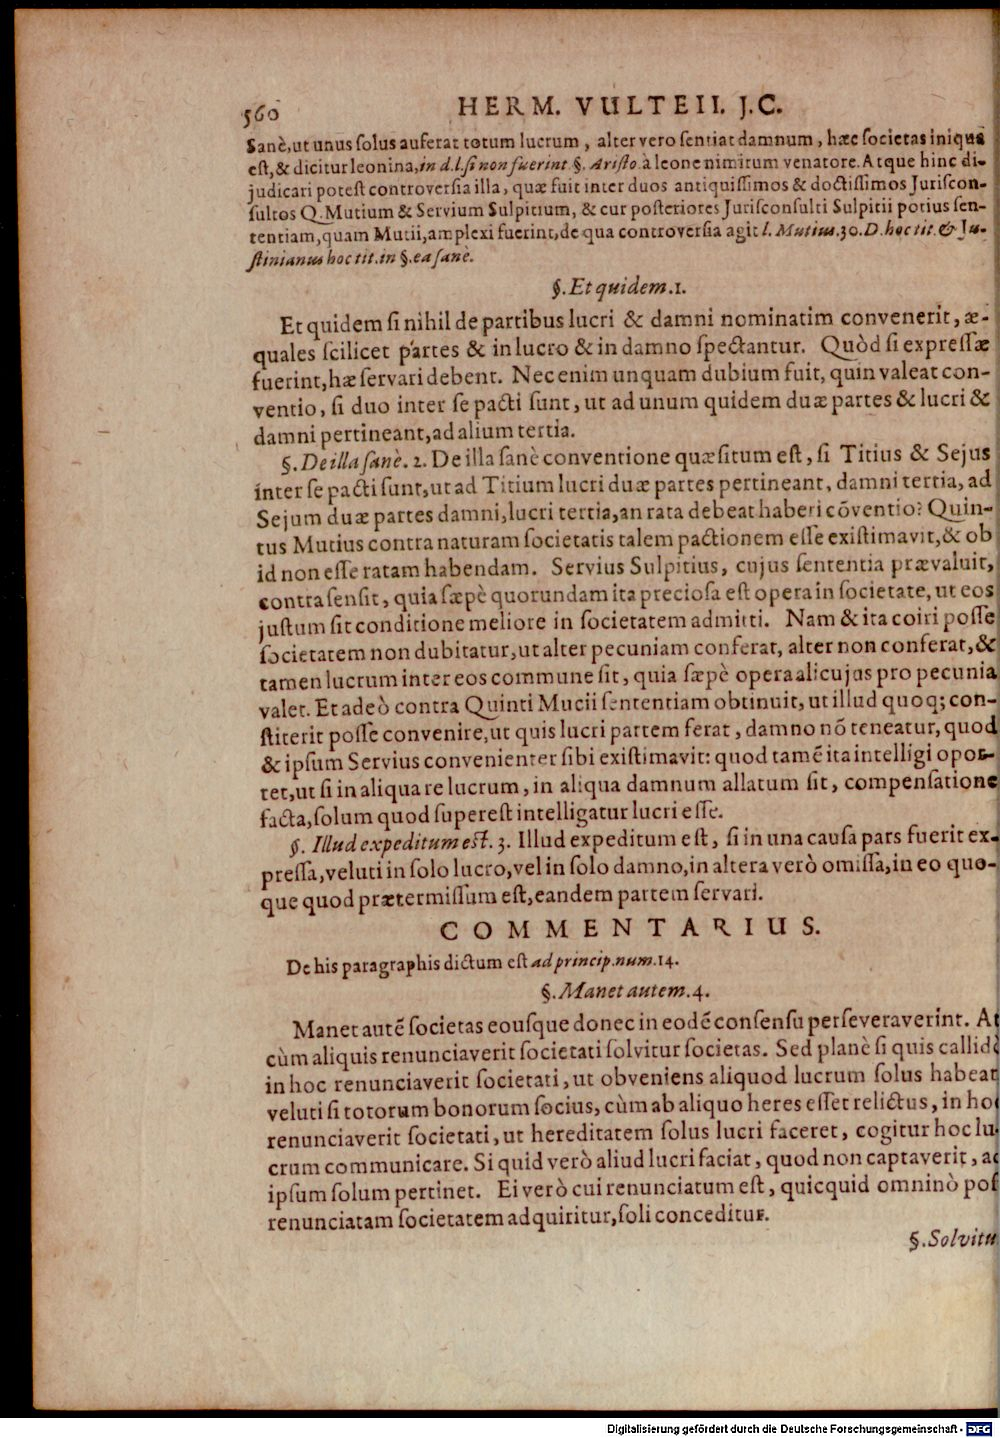 560 HERM. VULTEII. J.C.
Sanè, ut unus solus auferat totum lucrum, alter vero sentiat damnum, hæc societas iniqua
est, & dicitur leonina, in d.l. si non fuerint §. Aristo. à leone nimirum venatore. Atque hinc di-
judicari potest controversia illa, quæ fuit inter duos antiquissimos & doctissimos Juriscon-
sultos Q. Mutium & Servium Sulpitium, & cur posteriores Jurisconsulti Sulpitii potius sen-
tentiam, quam Mutii, amplexi fuerint, de qua controversia agit l. Mutius. 30. D. hoc tit. & Ju-
stinianus hoc tit. in §. ea sanè.
§. Et quidem. 1.
Et quidem si nihil de partibus lucri & damni nominatim convenerit, æ-
quales scilicet partes & in lucro & in damno spectantur. Quòd si expressæ
fuerint, hæ servari debent. Nec enim unquam dubium fuit, quin valeat con-
ventio, si duo inter se pacti sunt, ut ad unum quidem duæ partes & lucri &
damni pertineant, ad alium tertia.
§. De illa sanè. 2. De illa sanè conventione quæsitum est, si Titius & Sejus
inter se pacti sunt, ut ad Titium lucri duæ partes pertineant, damni tertia, ad
Sejum duæ partes damni, lucri tertia, an rata debeat haberi cōventio? Quin-
tus Mutius contra naturam societatis talem pactionem esse existimavit, & ob
id non esse ratam habendam. Servius Sulpitius, cujus sententia prævaluit,
contra sensit, quia sæpè quorundam ita preciosa est opera in societate, ut eos
justum sit conditione meliore in societatem admitti. Nam & ita coiri posse
societatem non dubitatur, ut alter pecuniam conferat, alter non conferat, &
tamen lucrum inter eos commune sit, quia sæpè opera alicujus pro pecunia
valet. Et adeò contra Quinti Mucii sententiam obtinuit, ut illud quoq; con-
stiterit posse convenire, ut quis lucri partem ferat, damno nō teneatur, quod
& ipsum Servius convenienter sibi existimavit: quod tamē ita intelligi opor-
tet, ut si in aliqua re lucrum, in aliqua damnum allatum sit, compensatione
facta, solum quod superest intelligatur lucri esse.
§. Illud expeditum est. 3. Illud expeditum est, si in una causa pars fuerit ex-
pressa, veluti in solo lucro, vel in solo damno, in altera verò omissa, in eo quo-
que quod prætermissum est, eandem partem servari.
COMMENTARIUS.
De his paragraphis dictum est ad princip. num. 14.
§. Manet autem. 4.
Manet autē societas eousque donec in eodē consensu perseveraverint. At
cùm aliquis renunciaverit societati solvitur societas. Sed planè si quis callidè
in hoc renunciaverit societati, ut obveniens aliquod lucrum solus habeat
veluti si totorum bonorum socius, cùm ab aliquo heres esset relictus, in hoc
renunciaverit societati, ut hereditatem solus lucri faceret, cogitur hoc lu-
crum communicare. Si quid verò aliud lucri faciat, quod non captaverit, ad
ipsum solum pertinet. Ei verò cui renunciatum est, quicquid omninò pos
renunciatam societatem adquiritur, soli conceditur.
§. Solvitu
Digitalisierung gefördert durch die Deutsche Forschungsgemeinschaft - DFG